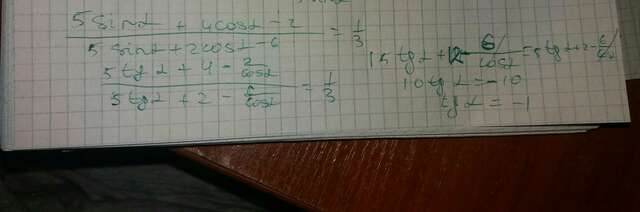 5 sinα + 4cosα - 2
5 sinα + 2cosα - 6
= 1/3
5 tgα + 4 - 2/cosα
5 tgα + 2 - 6/cosα
= 1/3
15 tgα + 12 - 6/cosα = 5 tgα + 2 - 6/cosα
10 tgα = -10
tgα = -1